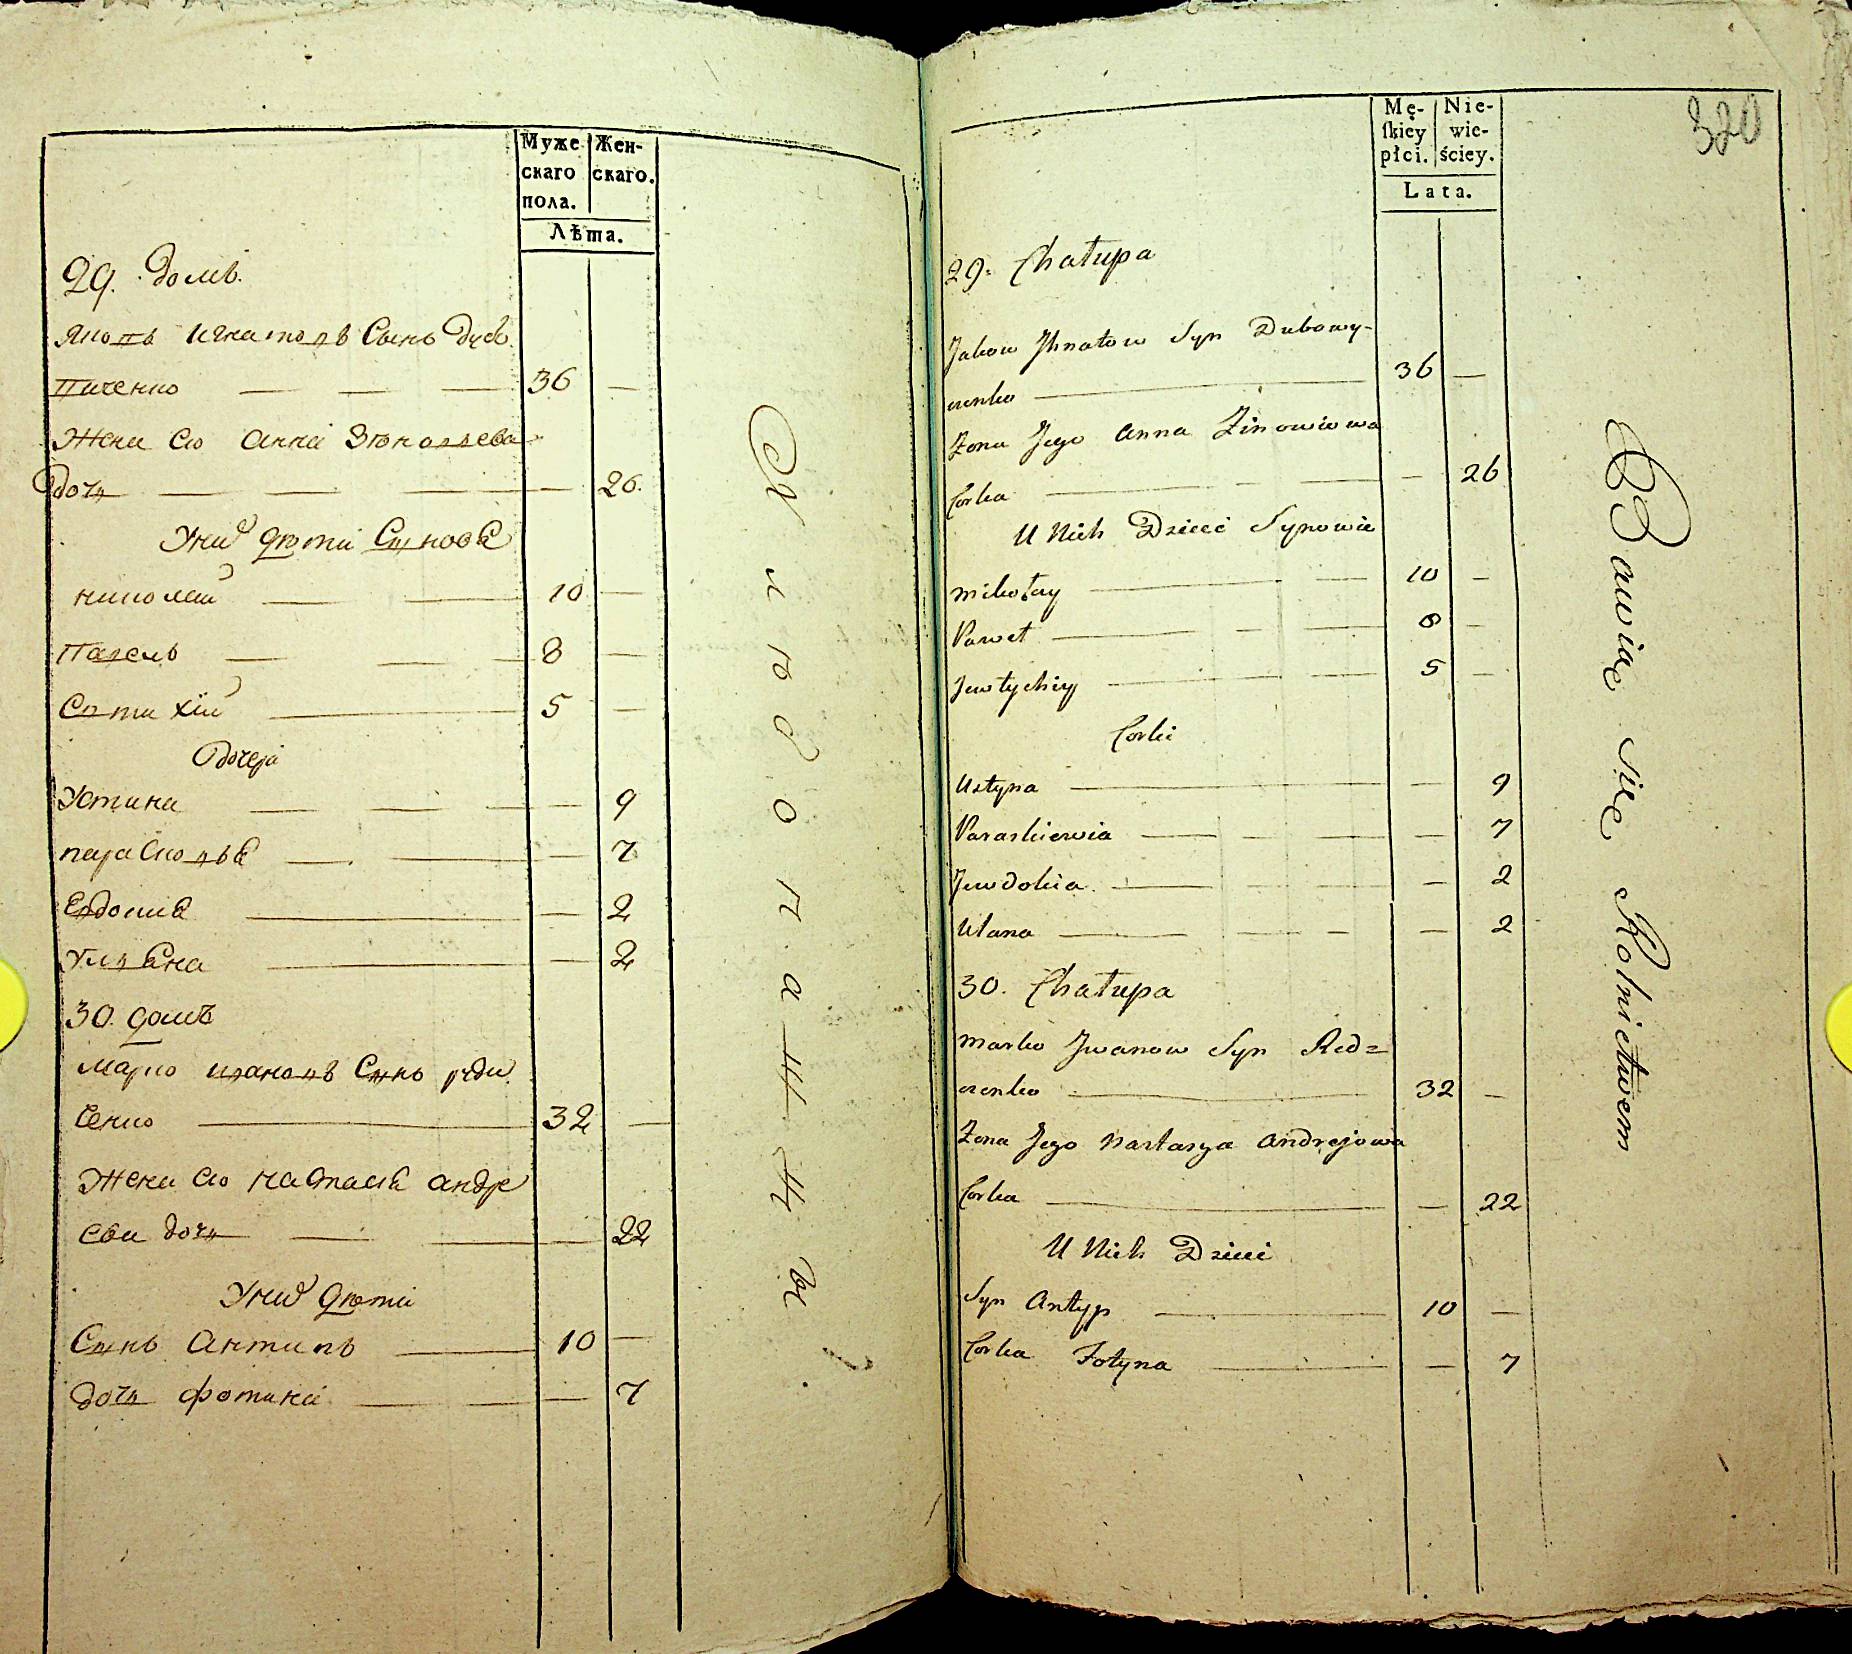 Муже
скаго
пола.
Жен-
скаго.
Лѣта.
29. домъ.
Яковъ Игнатовъ Сынъ Дубо
виченко — — — 36 —
Жена его Анна Зѣновъева
дочь — — — — 26.
У них дѣти Сыновя
николай — — 10 —
Павелъ — — — 8 —
Евтихій — 5 —
Дочери
Устина — — — — 9
параСковья — — — 7
Евдокия — — 2
Улияна — — 2
30. домъ
Марко ивановъ Сынъ реди
ченко — 32 —
Жена его наСтасия андре
ева дочь — — — 22
У них дѣти
Сынъ Антипъ — 10 —
дочь фотина — — — 7
Хлѣбопашцы
320
Mę-
ſkiey
płci.
Nie-
wie-
ściey.
Lata.
29. Chałupa
Jakow Ihnatow Syn Dubowy-
czenko — 36 —
Żona Jego Anna Zinowiowa
Corka — — — — 26
U Nich Dzieci Synowie
Mikołay — — 10 —
Paweł — — — 8 —
Jewtychiy — — — 5 —
Corki
Ustyna — — 9
Paraskiewia — — — 7
Jewdokia. — — — 2
Ulana — — — — 2
30. Chałupa
Marko Iwanow Syn Red=
czenko — 32 —
Żona Jego Nastasya Andrejowa
Corka — — 22
U Nich Dzieci
Syn Antyp — 10 —
Corka Fotyna — — 7
Bawiąc się Rolnictwem